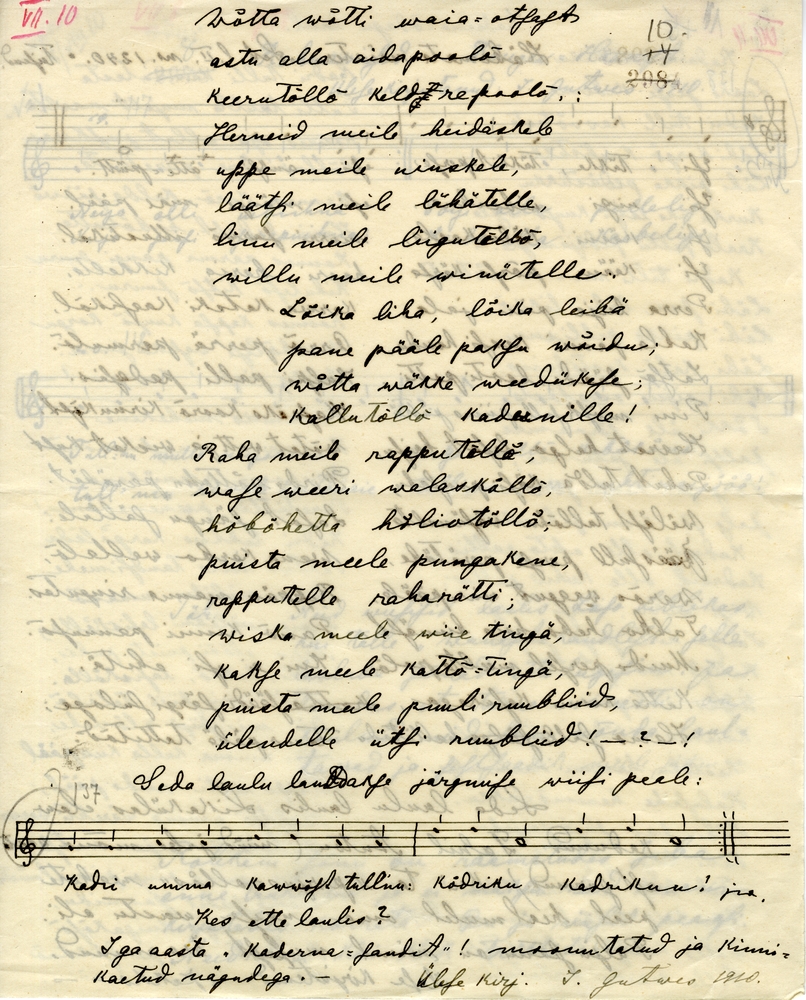 VII. 10
10.
14
298
Wõtta wõtti waia=otsast
astu alla aidapoolõ
Keerutõllõ keldrepoolõ,:
Herneid meile heidäskele
uppe meile niuskele,
läätsi meile läkätelle,
linu meile liigutellõ,
willu meile winütelle.
Lõika liha, lõika leibä
pane pääle paksu wõidu;
wõtta wäkke weedükese;
Kallutõllõ kadunille!
Raha meile rapputõllõ,
wase weeri walaskõllõ,
hõbõhetta hõliotõllõ;
puista meele pungakene,
rapputelle raharätti;
wiska meele wiie tingä,
kakse meele kattõ=tingä,
puista meele puuli ruubliid,
ülendelle ütsi ruubliid! — ? — !
Seda laulu lauldakse järgmise wiisi peele:
137
Kadri umma kawwõst tullnu: Kõdriku Kadrikuu! jna.
Kes ette laulis?
Iga aasta „Kaderna=sandit“! moonutatud ja kinni=
kaetud nägudega. —
Ülese kirj. J. Gutwes 1910.